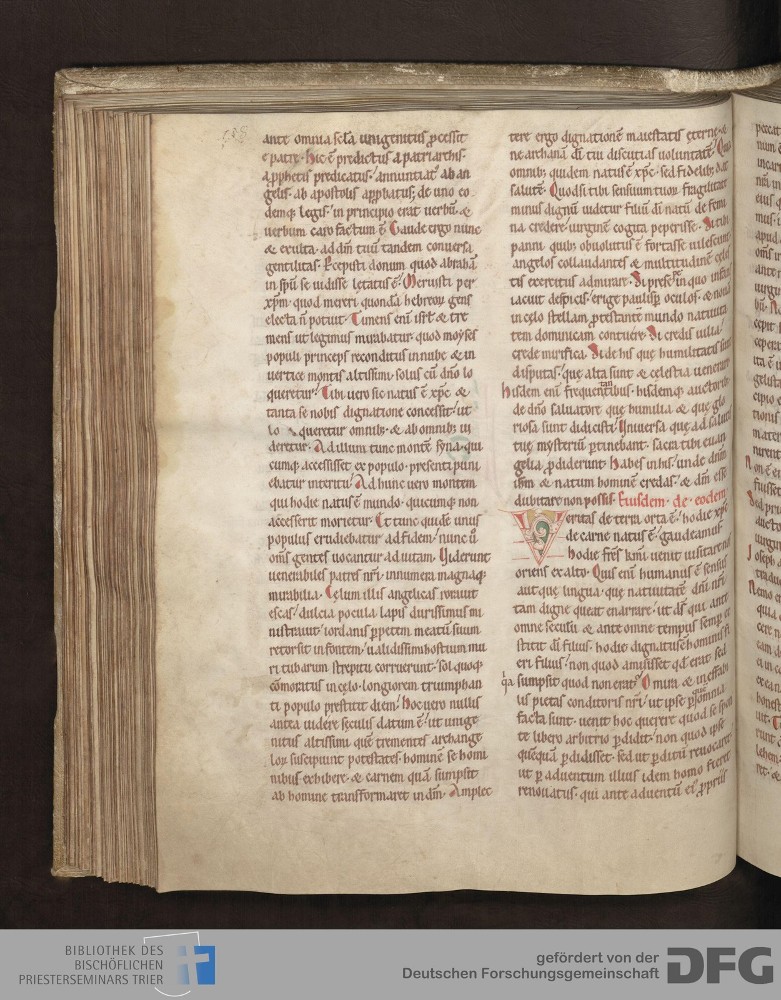 ante omnia sclа unigenitus ꝓcessit
e patre. Hic ē predictus a patriarchis.
a ꝓphetis predicatus. annuntiatꝰ ab an
gelis. ab apostolis apphatus; de uno eo
demq; legis. in principio erat uerbū. &
uerbum caro factum ē. Gaude ergo nunc
& exulta. ad dm̄ tuū tandem conuersa
gentilitas. Recepisti donum quod abrahā
in spū se uidisse letatus ē. Meruisti per
xp̄m. quod mereri quondā hebreoꝝ gens
electa n̄ potuit. Timens eni isrł & tre
mens ut legimus mirabatur. quod moyses
populi princeps reconditus in nube & in
uertice montis altissimi solus cū dn̄o lo
queretur. Tibi uero sic natus ē xp̄c &
tanta se nobis dignatione concessit. ut
lo queretur omnib; & ab omnib; ui
deretur. Ad illum tunc montē syna. qui
cumq; accessisset ex populo. presenti puni
ebatur interitu. Ad hunc uero montem
qui hodie natus ē mundo. quicumq; non
accesserit morietur. Et tunc quidē unus
populus erudiebatur ad fidem. nunc ū
om̄s gentes uocantur ad uitam. Uiderunt
uenerabiles patres nr̄i. innumera magnaq;
mirabilia. Celum illis angelicas rorauit
escas. dulcia pocula lapis durissimus mi
nistrauit. iordanis ꝑpetem meatū suum
retorsit in fontem. ualidissimi hostium mu
ri tubarum strepitu corruerunt. sol quoq;
cōmoratus in celo. longiorem triumphan
ti populo prestitit diem. Hoc uero nullis
antea uidere seculis datum ē. ut unige
nitus altissimi quē trementes archange
loꝝ suscipiunt potestates. hominē se homi
nibus exhibere. & carnem quā sumpsit
ab homine transformaret in dm̄. Amplec
tere ergo dignationē maiestatis eterne. &
ne archana di tui discutias uoluntate. Qui
omnib; quidem natus ē xp̄c. sed fidelib; dat
salutē. Quodsi tibi sensuum tuoꝝ fragilitate
minus dignū uidetur filiū di natū de femi
na credere. uirginē cogita peperisse. Si tibi
panni quib; obuolutus ē fortasse uilescunt.
angelos collaudantes & multitudinē celes
tis exercitus admirare. Si presepe in quo infans
iacuit despicis. erige paulisꝑ oculos. & nouā
in celo stellam ꝓtestante mundo natiuita
tem dominicam contuere. Si credis uilia.
crede mirifica. Si de his que humilitatis sunt
disputas. que alta sunt & celestia uenerare
hisdem eni frequentantibus. hisdemq; auctorib;
de dn̄o saluatore que humilia & que glo
riosa sunt didicisti. Uniuersa que ad salutē
tue mysteriū pertinebant. sacra tibi euan
gelia ꝓdiderunt. Habes in his. unde dn̄m
ihm & natum hominē credas. & dm̄ esse
dubitare non possis. Eiusdem. de eodem
Veritas de terra orta ē. hodie xp̄c
de carne natus ē. gaudeamus
hodie frēs kmi. uenit uisitare nos
oriens ex alto. Quis eni humanus ē sensus
aut que lingua. que natiuitatē dn̄i nr̄i
tam digne queat enarrare. ut ds̄ qui ante
omne seculū & ante omne tempus semꝑ ex
stitit di filius. hodie dignatus ē hominis fi
eri filius. non quod amisisset qd̄ erat. sed
qa sumpsit quod non erat. O mira & ineffabi
lis pietas conditoris nr̄i. ut ipse ꝑ quē omnia
facta sunt. uenit hoc querere quod se spon
te libero arbitrio ꝑdidit. non quod ipse
quēquā ꝑdidisset. sed ut ꝑditū reuocaret.
ut ꝑ aduentum illius idem homo fieret
renouatus. qui ante aduentū ei ꝓpriis
BIBLIOTHEK DES
BISCHÖFLICHEN
PRIESTERSEMINARS TRIER
gefördert von der
Deutschen Forschungsgemeinschaft
DFG